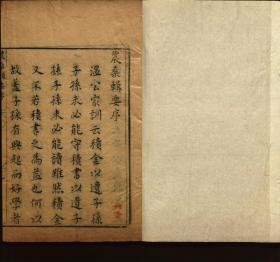 農桑輯要序
溫公家訓云積金以遺子孫
子孫未必能守積書以遺子
孫子孫未必能讀雖然積金
又不若積書之為益也何以
故蓋子孫有興起而好學者